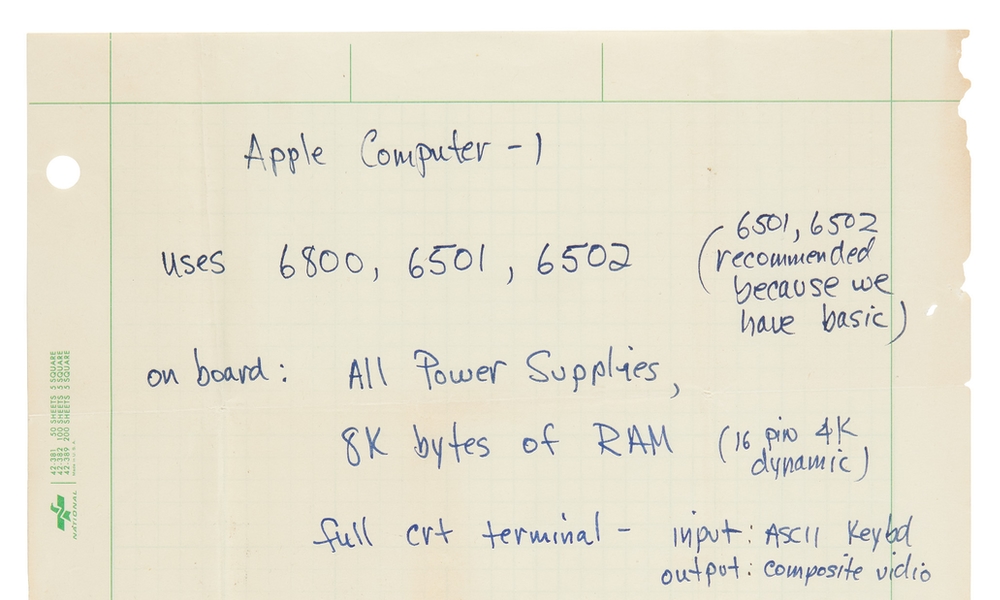 Apple Computer - 1
uses 6800, 6501, 6502 (6501, 6502
recommended
because we
have basic)
on board: All Power Supplies,
8K bytes of RAM (16 pin 4K
dynamic)
full crt terminal - input: ASCII Keybd
output: composite vidio
42-381 50 SHEETS 5 SQUARE
42-382 100 SHEETS 5 SQUARE
42-389 200 SHEETS 5 SQUARE
NATIONAL